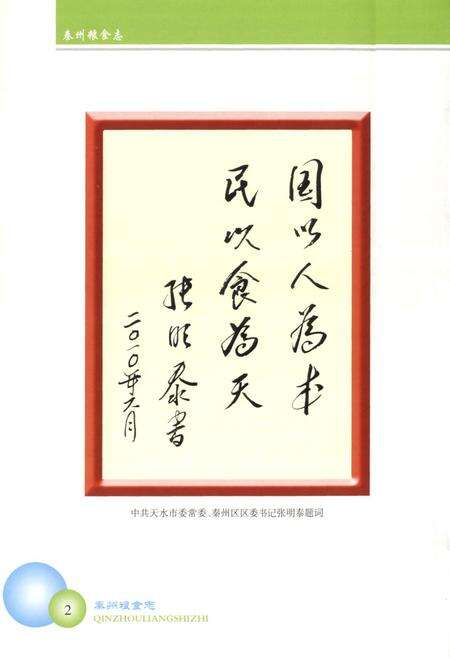 秦州粮食志
国以人为本
民以食为天
张明泰书
二〇一〇年六月
中共天水市委常委、秦州区区委书记张明泰题词
2
秦州粮食志
QINZHOULIANGSHIZHI